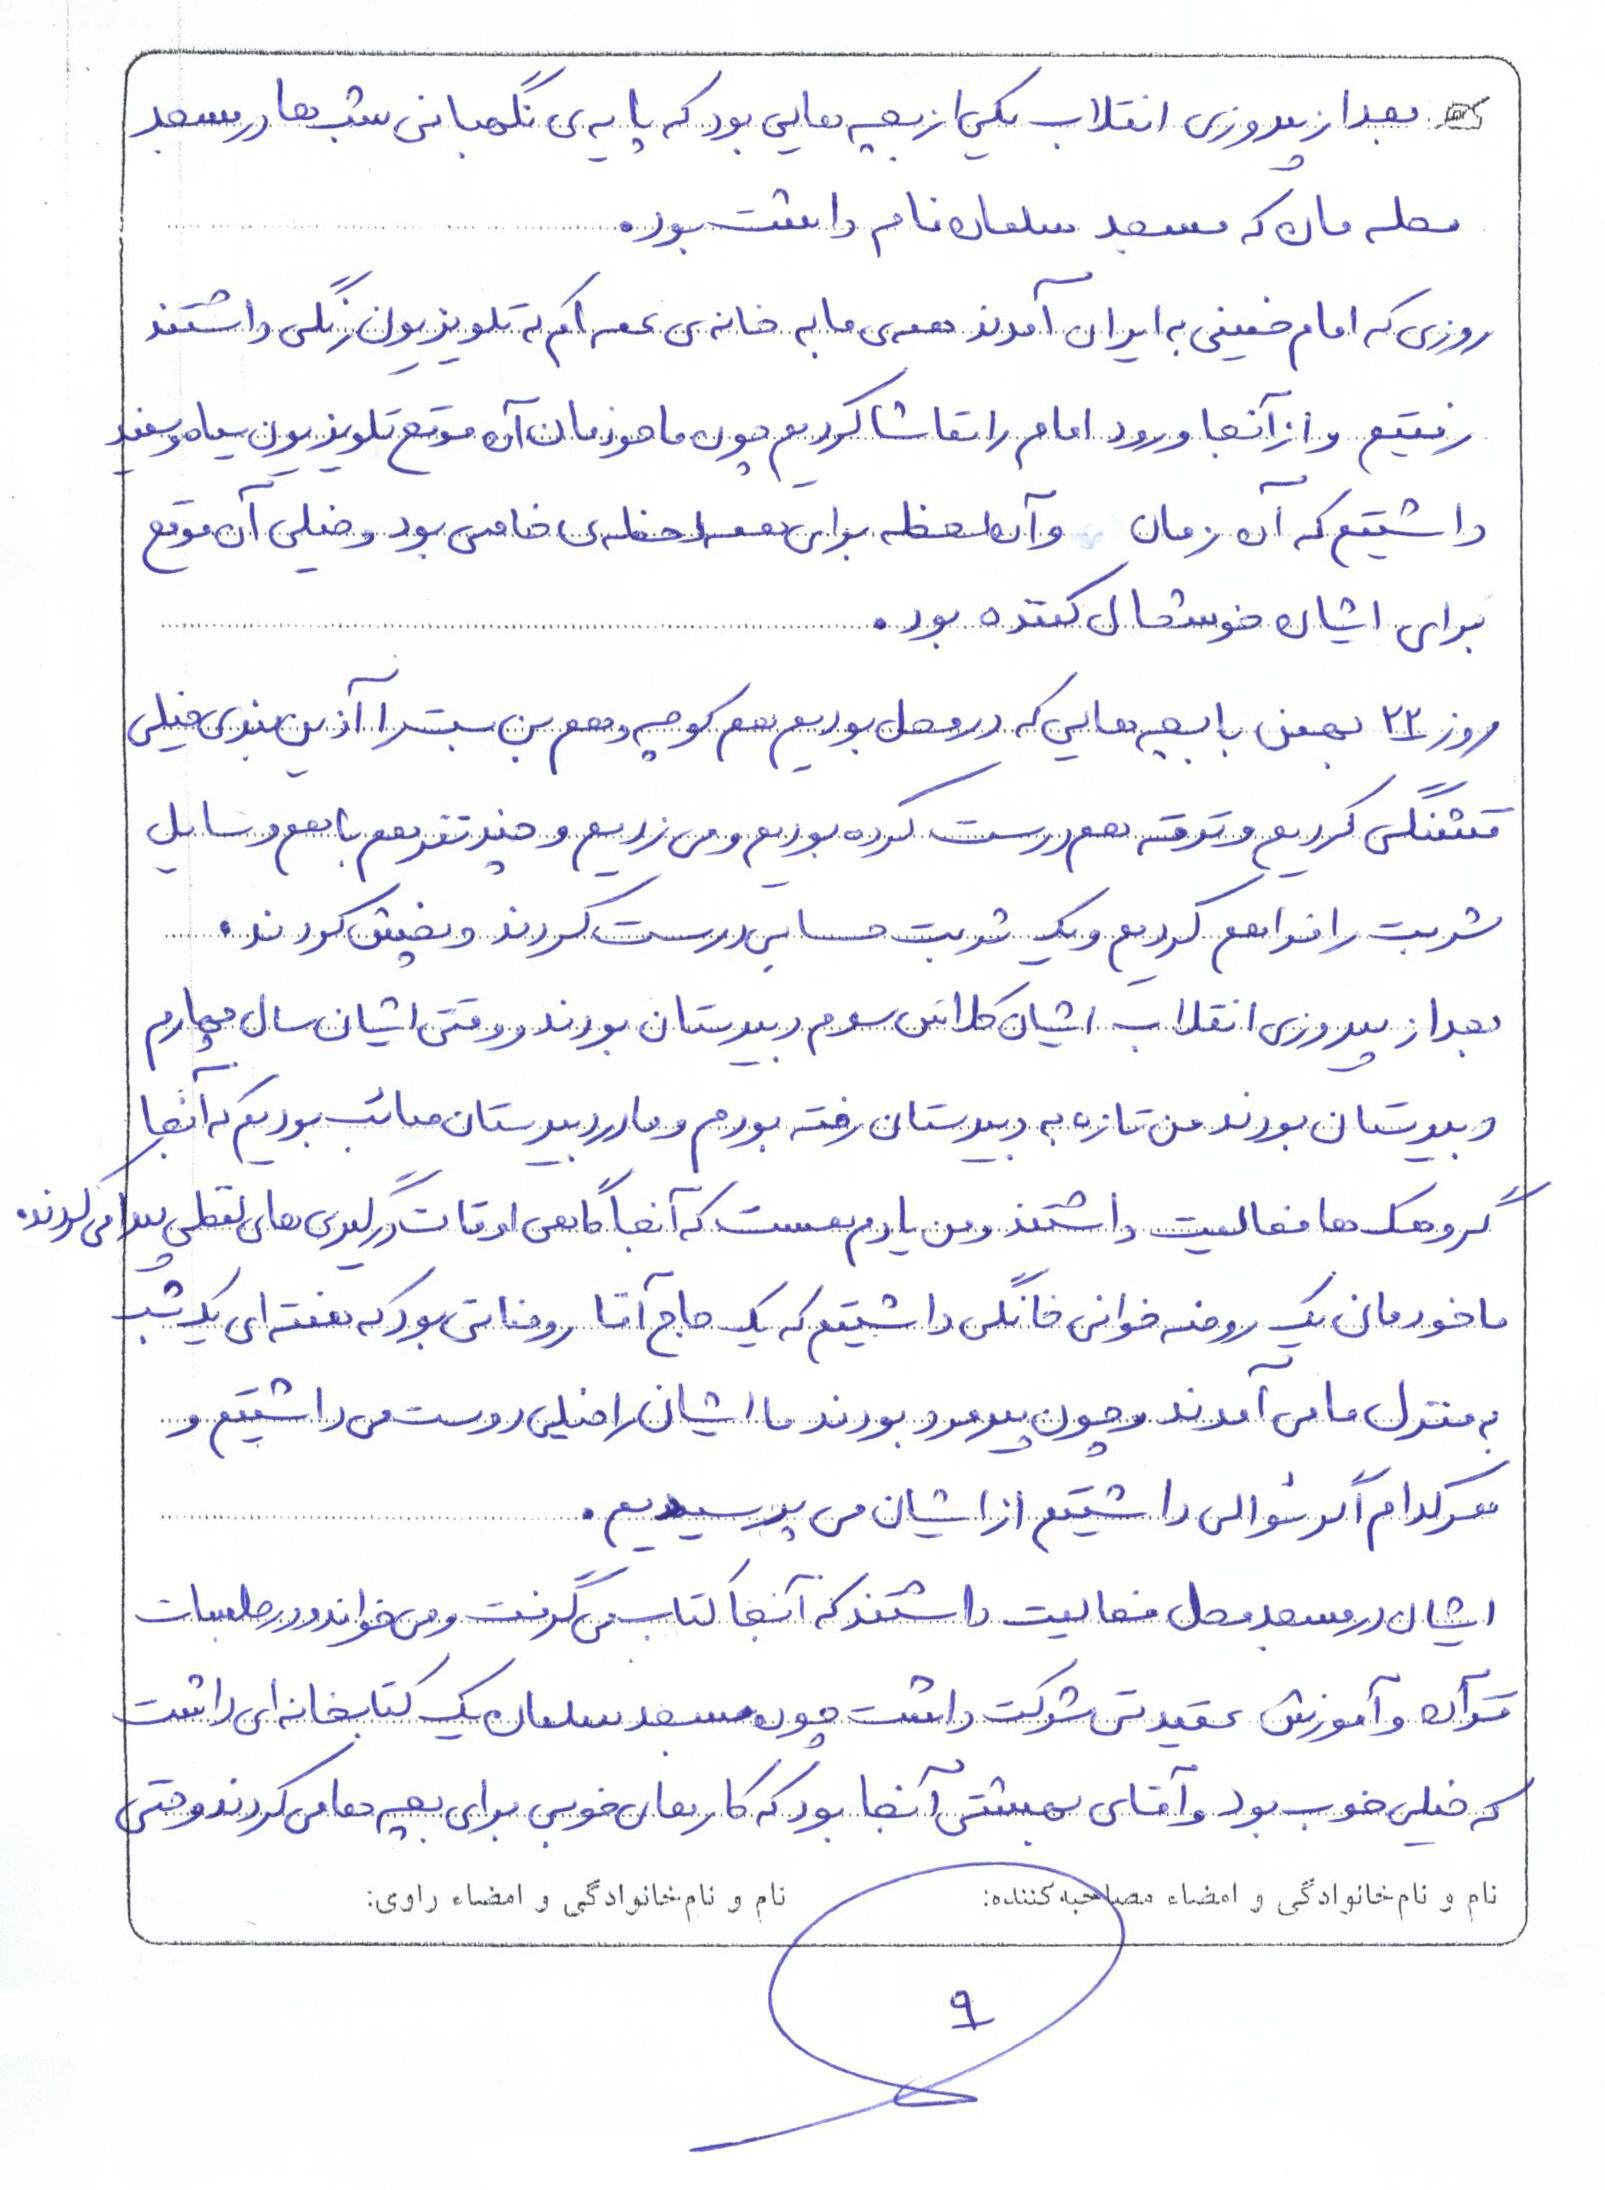 بعد از پیروزی انقلاب یکی از بچه هایی بود که پایه ی نگهبانی شب ها در مسجد
محله مان که مسجد سلمان نام داشت بود.
روزی که امام خمینی به ایران آمدند همه ی ما به خانه ی عمه ام که تلویزیون رنگی داشتند
رفتیم و از آنجا ورود امام را تماشا کردیم چون ما خودمان آن موقع تلویزیون سیاه و سفید
داشتیم که آن زمان و آن لحظه برای همه لحظه ی خاصی بود و خیلی آن موقع
برای ایشان خوشحال کننده بود.
روز ۲۲ بهمن با بچه هایی که در محل بودیم هم کوچه و هم بن بست را آذین بندی خیلی
قشنگی کردیم و ترقه هم درست کرده بودیم و می زدیم و چند نفر هم با هم وسایل
شربت را فراهم کردیم و یک شربت حسابی درست کردند و پخش کردند.
بعد از پیروزی انقلاب ایشان کلاس سوم دبیرستان بودند و وقتی ایشان سال چهارم
دبیرستان بودند من تازه به دبیرستان رفته بودم و ما در دبیرستان صائب بودیم که آنجا
گروهک ها فعالیت داشتند و من یادم هست که آنجا گاهی اوقات درگیری های لفظی پیدا می کردند.
ما خودمان یک روضه خوانی خانگی داشتیم که یک حاج آقا روضاتی بود که هفته ای یک شب
به منزل ما می آمدند و چون پیرمرد بودند ما ایشان را خیلی دوست می داشتیم و
هر کدام اگر سُوالی داشتیم از ایشان می پرسیدیم.
ایشان در مسجد محل فعالیت داشتند که آنجا کتاب می گرفت و می خواند و در جلسات
قرآن و آموزش عقیدتی شرکت داشت چون مسجد سلمان یک کتابخانه ای داشت
که خیلی خوب بود و آقای بهشتی آنجا بود که کارهای خوبی برای بچه ها می کردند و حتی
نام و نام خانوادگی و امضاء مصاحبه کننده: نام و نام خانوادگی و امضاء راوی:
۹